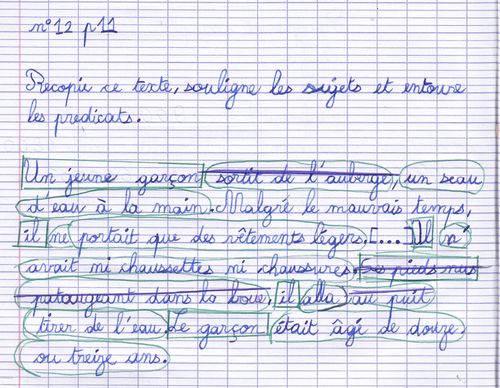 n°12 p11
Recopie ce texte, souligne les sujets et entoure
les prédicats.
Un jeune garçon sortit de l'auberge, un seau
d'eau à la main. Malgré le mauvais temps,
il ne portait que des vêtements légers, [...] Il n'
avait ni chaussettes ni chaussures. Ses pieds nus
pataugeant dans la boue, il alla au puit
tirer de l'eau. Le garçon était âgé de douze
ou treize ans.